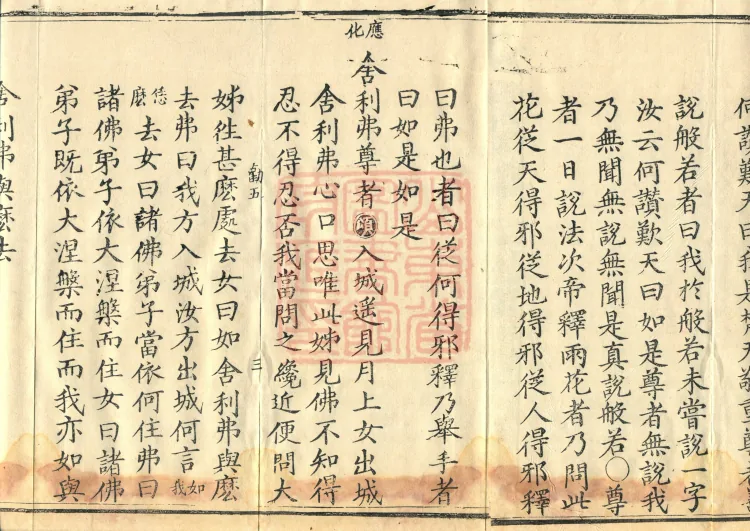 天曰我是梵天敬重尊
說般若者曰我於般若未嘗說一字
汝云何讃歎天曰如是尊者無說我
乃無聞無說無聞是真說般若○尊
者一日說法次帝釋雨花者乃問此
花從天得邪從地得邪從人得邪釋
曰弗也者曰從何得邪釋乃舉手者
曰如是如是
應化
舍利弗尊者入城遥見月上女出城
舍利弗心口思唯此姊見佛不知得
忍不得忍否我當問之纔近便問大
勸五 三
姊徃甚麽處去女曰如舍利弗與麽
去弗曰我方入城汝方出城何言如我
恁麽去女曰諸佛弟子當依何住弗曰
諸佛弟子依大涅槃而住女曰諸佛
弟子既依大涅槃而住而我亦如與
舍利弗與麽去